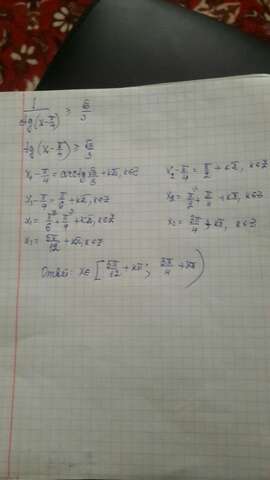 1/ctg(x-π/4) ≥ √3/3
tg(x-π/4) ≥ √3/3
x₁-π/4 = arctg √3/3 + πk, k∈Z x₂-π/4 = π/2 + πk, k∈Z
x₁-π/4 = π/6 + πk, k∈Z x₂ = π/2 + π/4 + πk, k∈Z
x₁ = π/6 + π/4 + πk, k∈Z x₂ = 3π/4 + πk, k∈Z
x₁ = 5π/12 + πk, k∈Z
Ответ: x∈[5π/12 + πk; 3π/4 + πk)